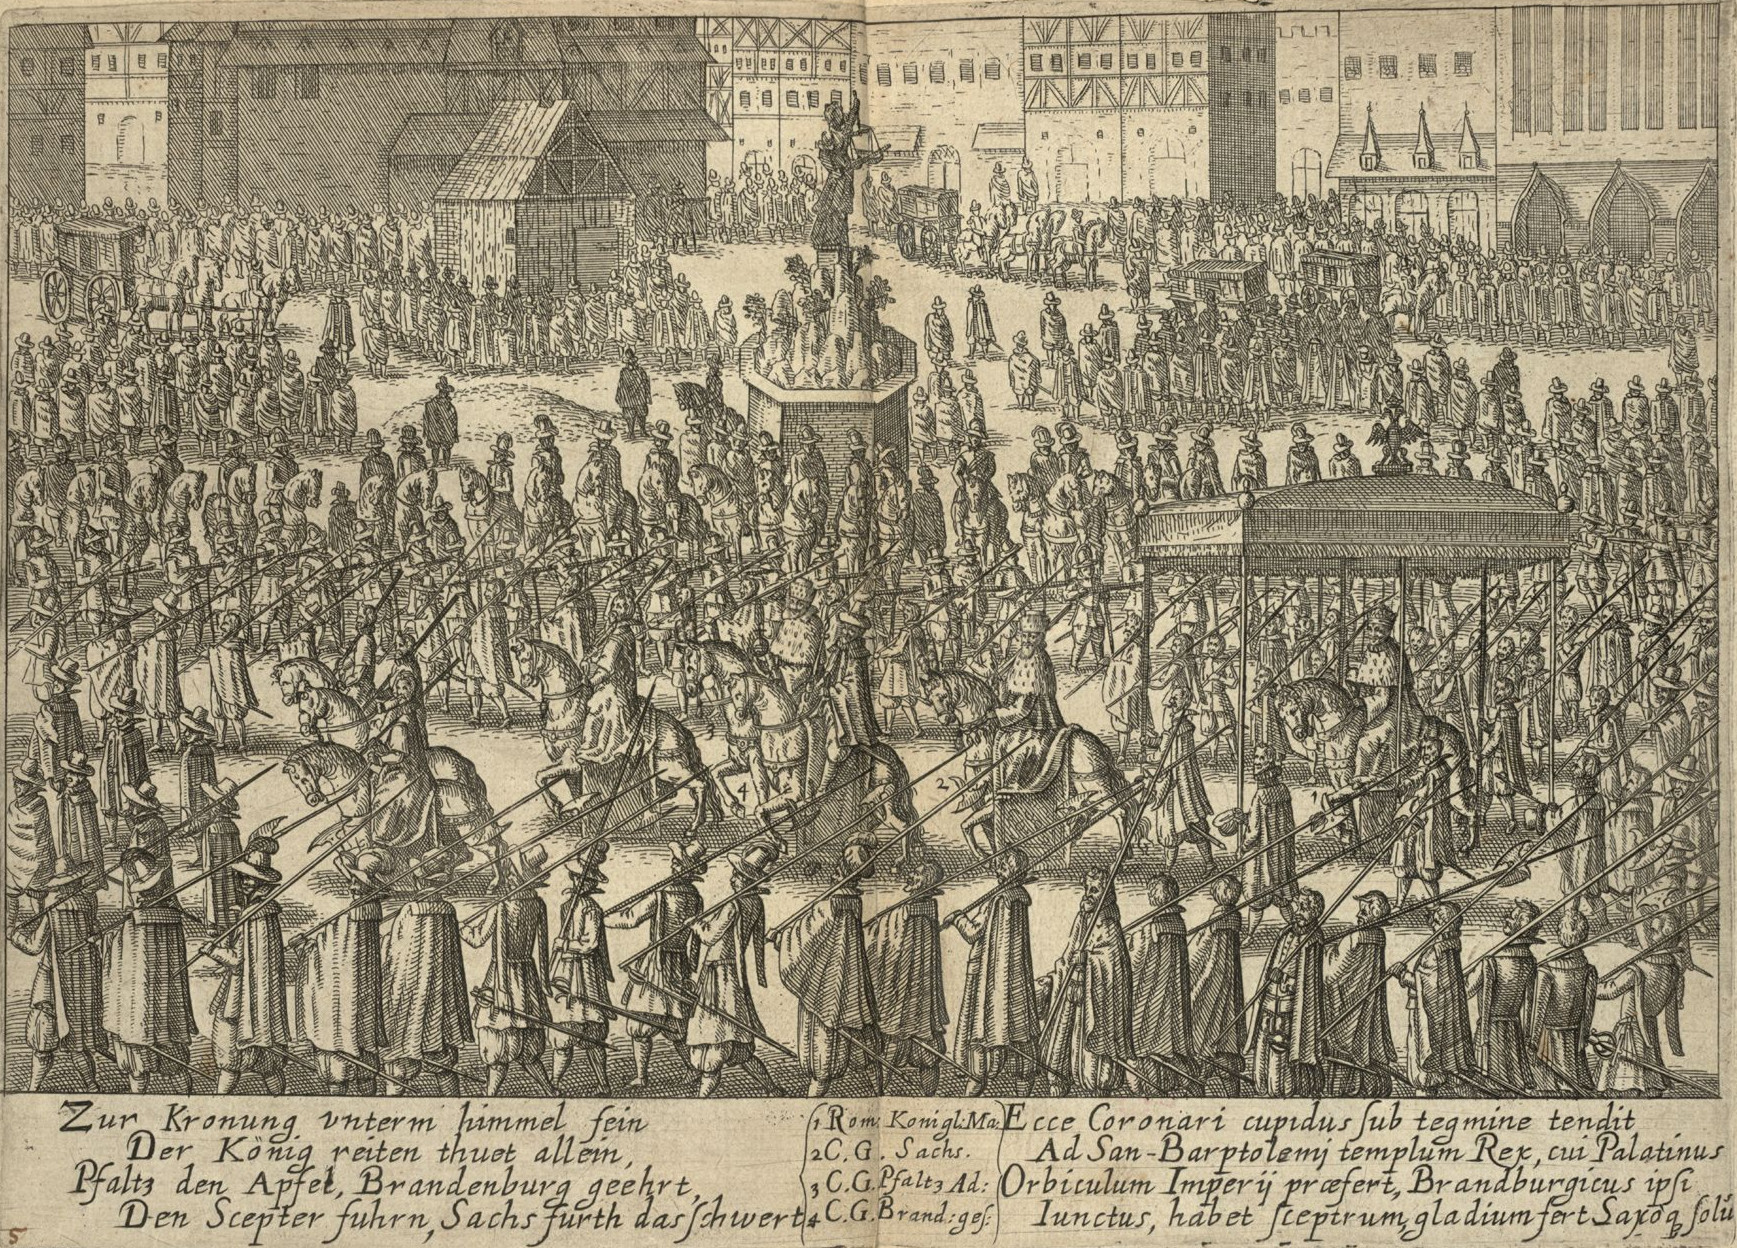 3
4
2
1
Zur Kronung vnterm himmel fein
Der König reiten thuet allein,
Pfaltz den Apfel, Brandenburg geehrt,
Den Scepter fuhrn, Sachs furth das schwert
1 Rom: Konigl: Ma:
2 C. G. Sachs.
3 C. G. Pfaltz Ad:
4 C. G. Brand: ges:
Ecce Coronari cupidus sub tegmine tendit
Ad San-Barptolemij templum Rex, cui Palatinus
Orbiculum Imperij præfert, Brandburgicus ipsi
Iunctus, habet sceptrum, gladium fert Saxoq solū
5